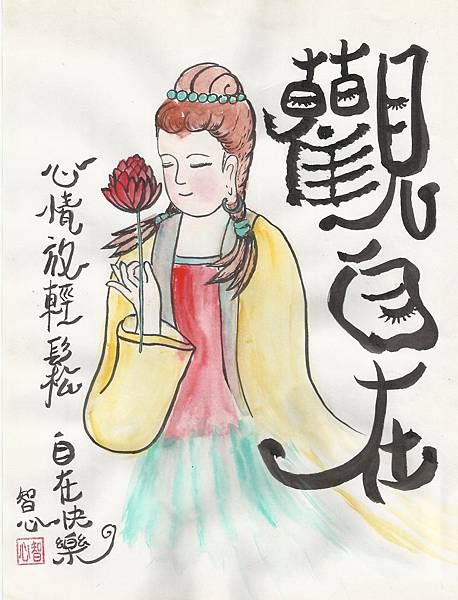 觀自在
心情放輕鬆
自在快樂
智心
智心